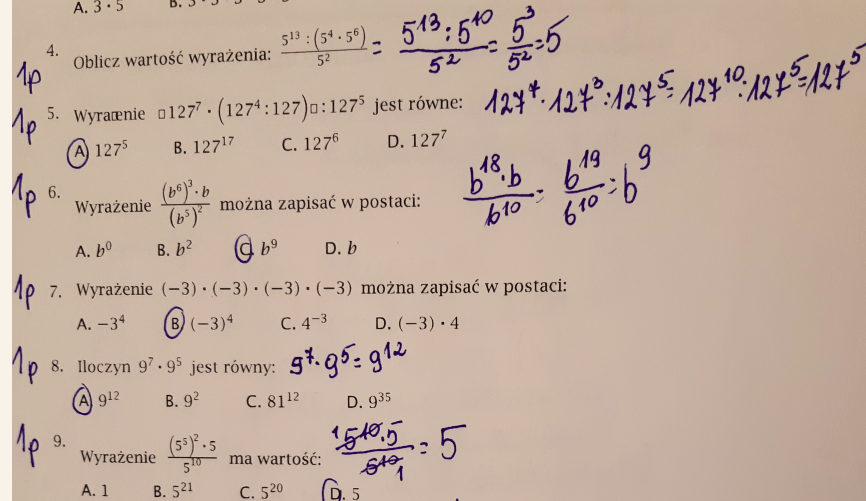 A. 3 · 5
1p 4. Oblicz wartość wyrażenia: \frac{5^{13} : (5^4 · 5^6)}{5^2} = \frac{5^{13} : 5^{10}}{5^2} = \frac{5^3}{5^2} = 5
1p 5. Wyraœnie □127^7 · (127^4 : 127)□ : 127^5 jest równe: 127^7 · 127^3 : 127^5 = 127^{10} : 127^5 = 127^5
A. 127^5 B. 127^{17} C. 127^6 D. 127^7
1p 6. Wyrażenie \frac{(b^6)^3 · b}{(b^5)^2} można zapisać w postaci: \frac{b^{18} · b}{b^{10}} = \frac{b^{19}}{b^{10}} = b^9
A. b^0 B. b^2 C. b^9 D. b
1p 7. Wyrażenie (−3) · (−3) · (−3) · (−3) można zapisać w postaci:
A. −3^4 B. (−3)^4 C. 4^{−3} D. (−3) · 4
1p 8. Iloczyn 9^7 · 9^5 jest równy: 9^7 · 9^5 = 9^{12}
A. 9^{12} B. 9^2 C. 81^{12} D. 9^{35}
1p 9. Wyrażenie \frac{(5^5)^2 · 5}{5^{10}} ma wartość: \frac{1 5^{10} · 5}{5^{10} 1} = 5
A. 1 B. 5^{21} C. 5^{20} D. 5